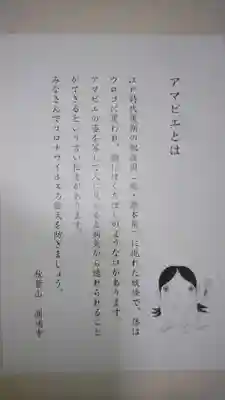 アマビエとは
江戸時代後期の肥後国（現・熊本県）に現れた妖怪で、体は
ウロコに覆われ、顔にはくちばしのような口があります。
アマビエの姿を写して人に見せると病気から逃れられること
ができるという言い伝えがあります。
みなさんでコロナウイルス感染を防ぎましょう。